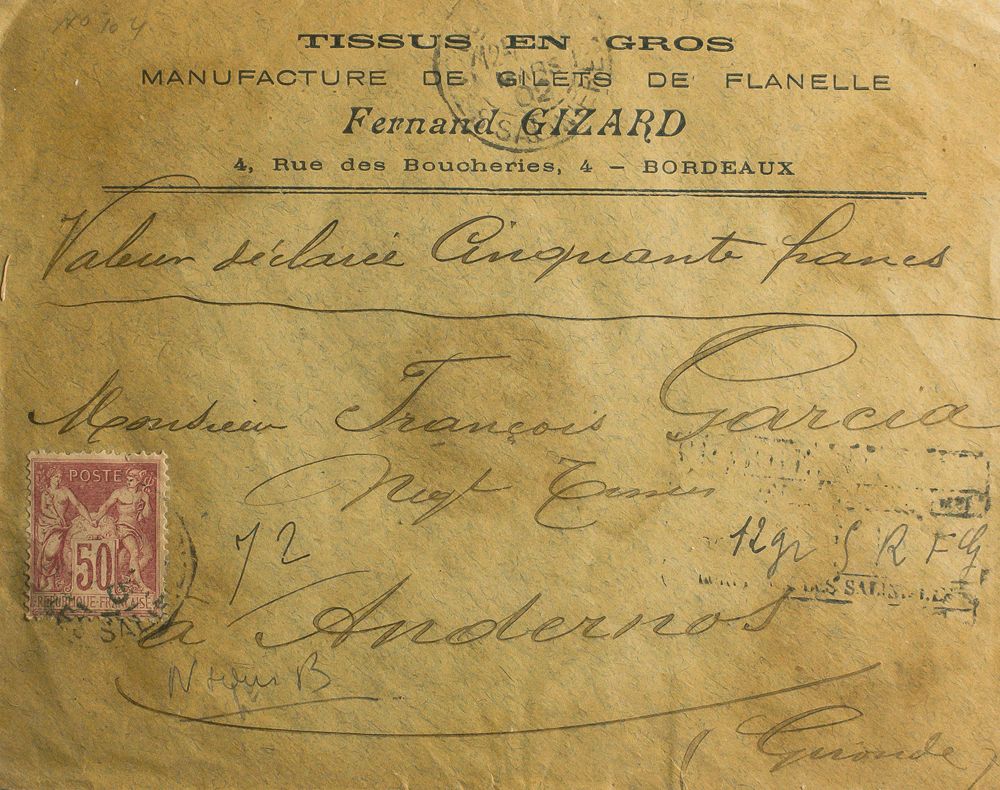 No 104
TISSUS EN GROS
MANUFACTURE DE GILETS DE FLANELLE
Fernand GIZARD
4, Rue des Boucheries, 4 – BORDEAUX
Valeur déclarée Cinquante francs
Monsieur François Garcia
Negt Tissus
POSTE
50
REPUBLIQUE FRANÇAISE
72
12 gr
à Andernos
(Gironde)